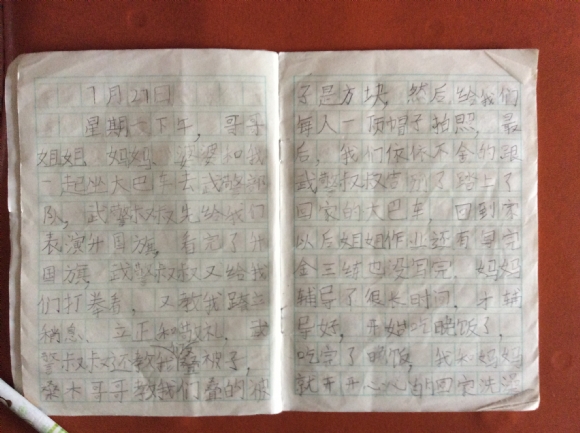 7月27日
星期一下午，哥哥
姐姐、妈妈、婆婆和我
一起坐大巴车去武警部
队，武警叔叔先给我们
表演升国旗，看完了升
国旗，武警叔叔又给我
们打拳看，又教我踏立
稍息、立正和敬礼，武
警叔叔还教给叠被子，
桑木哥哥教我们叠的被
子是方块，然后给我们
每人一顶帽子拍照，最
后，我们依依不舍的跟
武警叔叔告别了踏上了
回家的大巴车，回到家
以后姐姐作业还有写完
全三练也没写完，妈妈
辅导了很长时间，才辅
导好，开始吃晚饭了，
吃完了晚饭，我和妈妈
就开开心心的回家洗澡